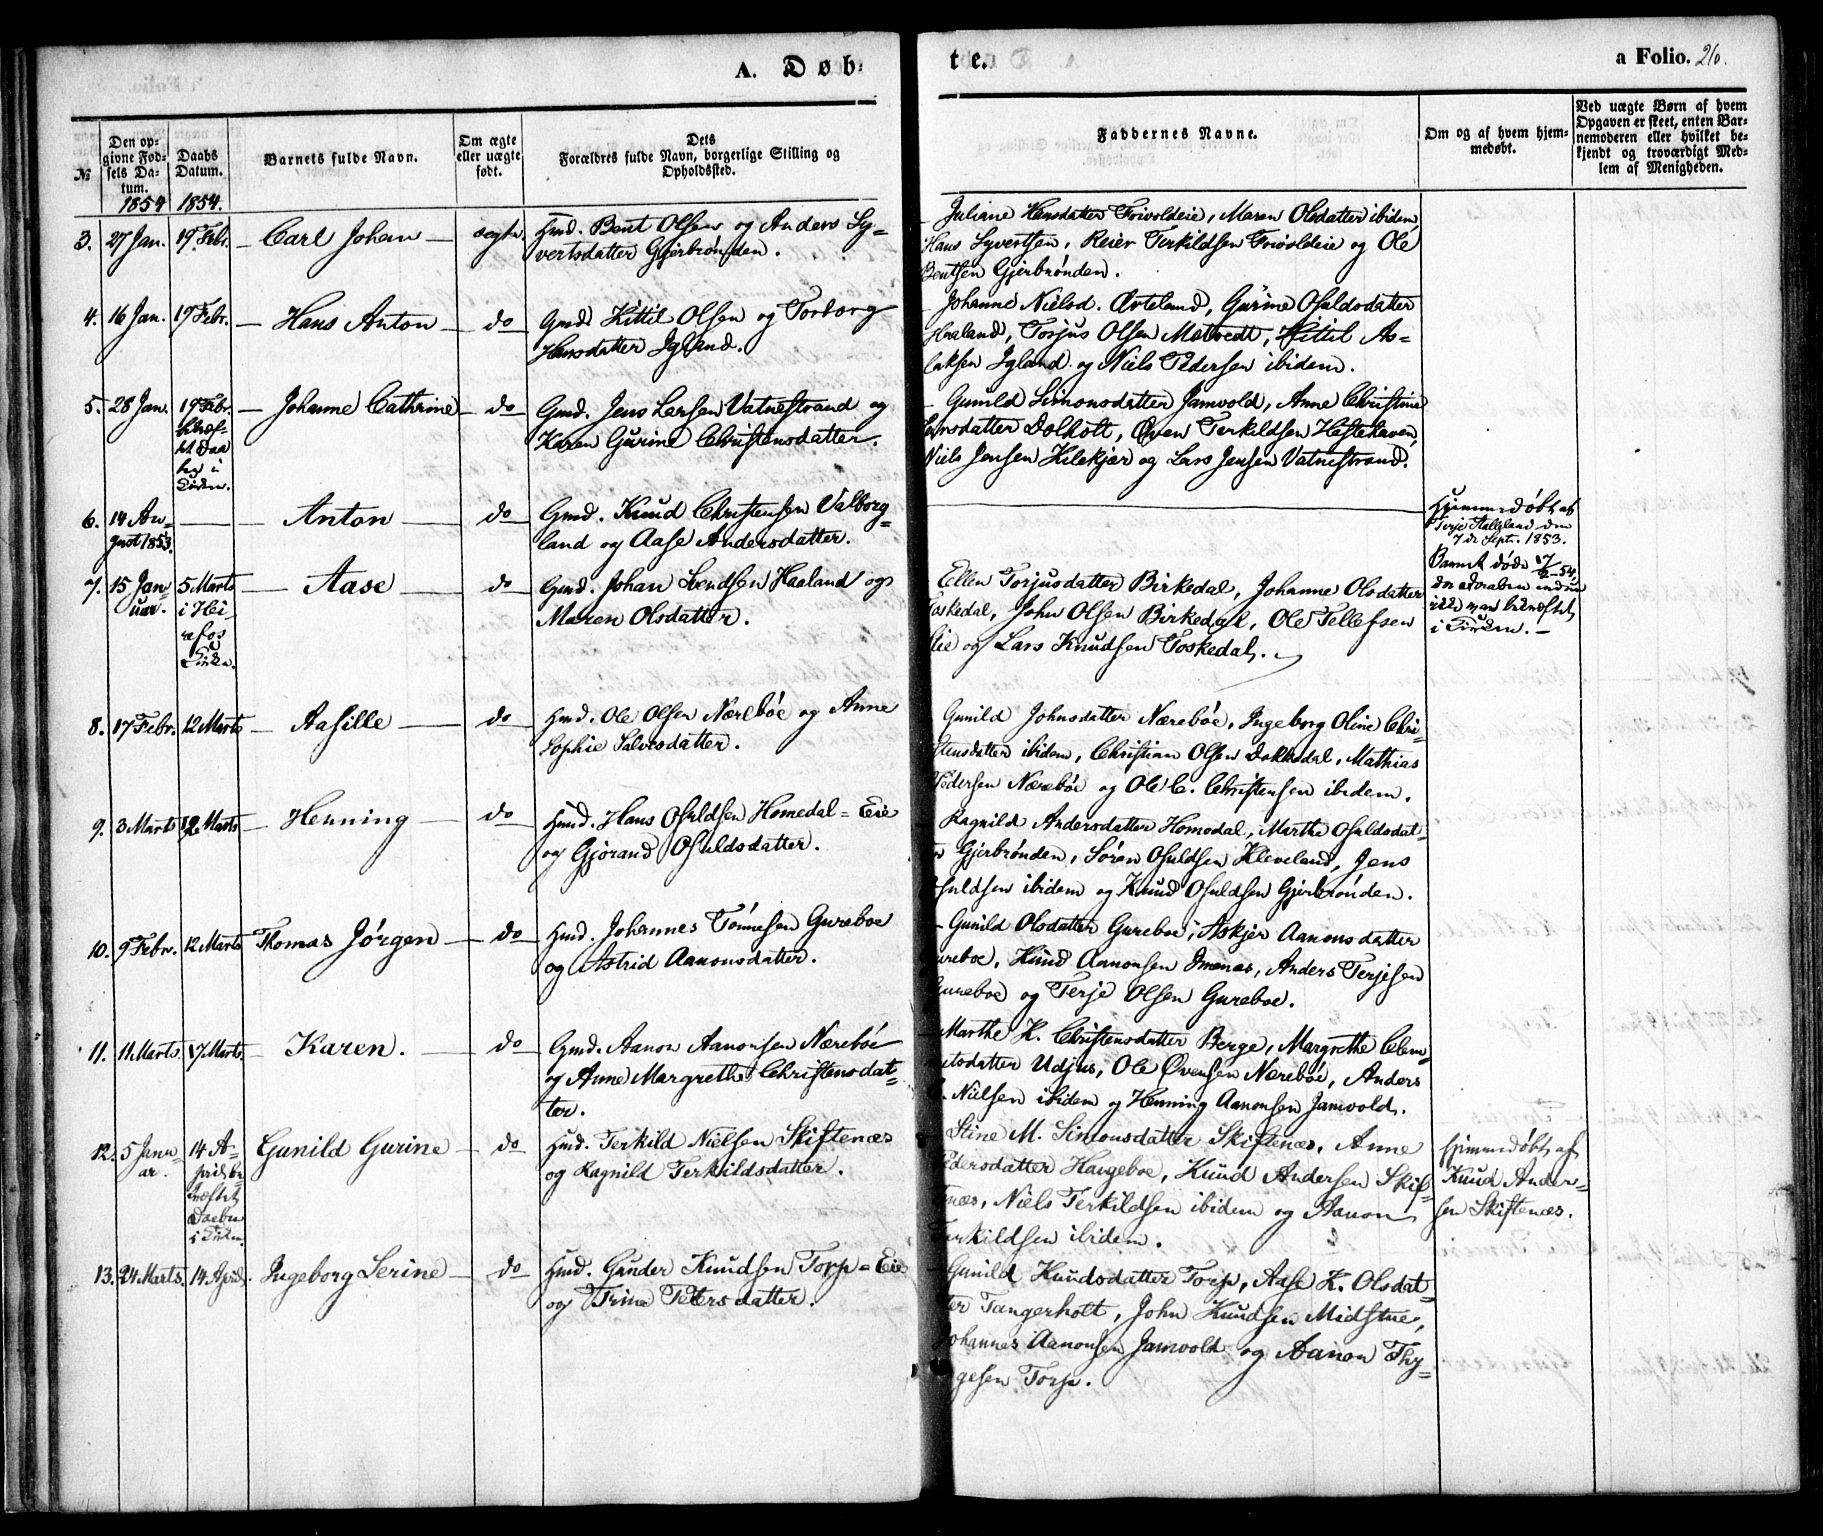 A. Døb-
te.
a Folio. 26.
№
Den op-
givne Fød-
sels Da-
tum.
1854
Daabs
Datum.
1854.
Barnets fulde Navn.
Om ægte
eller uægte
født.
Dets
Forældres fulde Navn, borgerlige Stilling og
Opholdssted.
Faddernes Navne.
Om og af hvem hjem-
medøbt.
Ved uægte Børn af hvem
Opgaven er skeet, enten Bar-
nemoderen eller hvilket be-
kjendt og troværdigt Med-
lem af Menigheden.
3. 27 Jan. 19 Febr. Carl Johan ægte Hmd. Bent Olsen og Anders Sy-
vertsdatter Gjerbrönden.
Juliane Hansdatter Frivoldeie, Maren Olsdatter ibidem,
Hans Syvertsen, Reier Terkildsen Frivoldeie og Ole
Bentsen Gjerbrönden.
4. 16 Jan. 19 Febr. Hans Anton do Gmd. Kittil Olsen og Torborg
Hansdatter Igland.
Johanne Nielsd. Øvteland, Gurine Osuldsdatter
Haaland, Torjus Olsen Møtvedt, Kittil As-
laksen Igland og Niels Pedersen ibidem.
5. 28 Jan. 19 Febr.
bekræf-
tet Daa
ben i
Kirken.
Johanne Cathrine do Gmd. Jens Larsen Vatnestrand og
Karen Gurine Christensdatter.
Gunild Simonsdatter Jamvold, Anne Christine
Larsdatter Dolholt, Øven Terkildsen Hestehaven,
Niels Jensen Kilekjær og Lars Jensen Vatnestrand.
6. 14 Au-
gust 1853.
Anton do Gmd. Knud Christensen Valborg-
land og Aase Andersdatter.
Hjemmedøbt af
Terje Aalleland den
7de Sept. 1853.
Barnet døde 17/2-54,
ikke var bekræftet
i Kirken.
7. 15 Jan
uar. 5 Marts
i Hei
refos
Kirke.
Aase do Gmd. Johan Svendsen Haaland og
Maren Olsdatter.
Ellen Torjusdatter Birkedal, Johanne Olsdatter
Toskedal, John Olsen Birkedal, Ole Tellefsen
Eie og Lars Knudsen Toskedal.
8. 17 Febr. 12 Marts Aasille do Hmd. Ole Olsen Nærebøe og Anne
Sophie Salvesdatter.
Gunild Johnsdatter Nærebøe, Ingeborg Oline Chri-
stensdatter ibidem, Christian Olsen Dokkedal, Mathias
Pedersen Nærebøe og Ole C. Christensen ibidem.
9. 3 Marts 12 Marts Henning do Hmd. Hans Osuldsen Homedal-Eie
og Gjørand Osuldsdatter.
Ragnild Andersdatter Homedal, Marthe Osuldsdat-
ter Gjerbrönden, Søren Osuldsen Kleveland, Jens
Osuldsen ibidem og Knud Osuldsen Gjerbrönden.
10. 9 Febr. 12 Marts Thomas Jørgen do Hmd. Johannes Tønnesen Gureboe
og Astrid Aanonsdatter.
Gunild Olsdatter Gureboe, Askjer Aanonsdatter
Gureboe, Knud Aanonsen Imenæs, Anders Terjesen
Gureboe og Terje Olsen Gureboe.
11. 11 Marts. 17 Marts. Karen. do Gmd. Aanon Aanonsen Nærebøe
og Anne Margrethe Christensdat-
ter.
Marthe K. Christensdatter Berge, Margrethe Clem-
metsdatter Udjus, Ole Øvensen Nærebøe, Anders
Nielsen ibidem og Henning Aanonsen Jamvold.
12. 5 Janu-
ar. 14 A-
pril be
kræftet
Daaben
i Kirken.
Gunild Gurine do Hmd. Terkild Nielsen Skiftenæs
og Ragnild Terkildsdatter.
Stine M. Simonsdatter Skiftenæs, Anne
Pedersdatter Haugeboe, Knud Andersen Skif-
tenæs, Niels Terkildsen ibidem og Aanon
Terkildsen ibidem.
Hjemmedøbt af
Knud Ander-
sen Skiftenæs.
13. 24 Marts. 14 April. Ingeborg Serine do Hmd. Gunder Knudsen Torp-Eie
og Trine Petersdatter.
Gunild Knudsdatter Torp, Aase K. Olsdat-
ter Tangerholt, John Knudsen Midstue,
Johannes Aanonsen Jamvold og Aanon Thy-
gesen Torp.